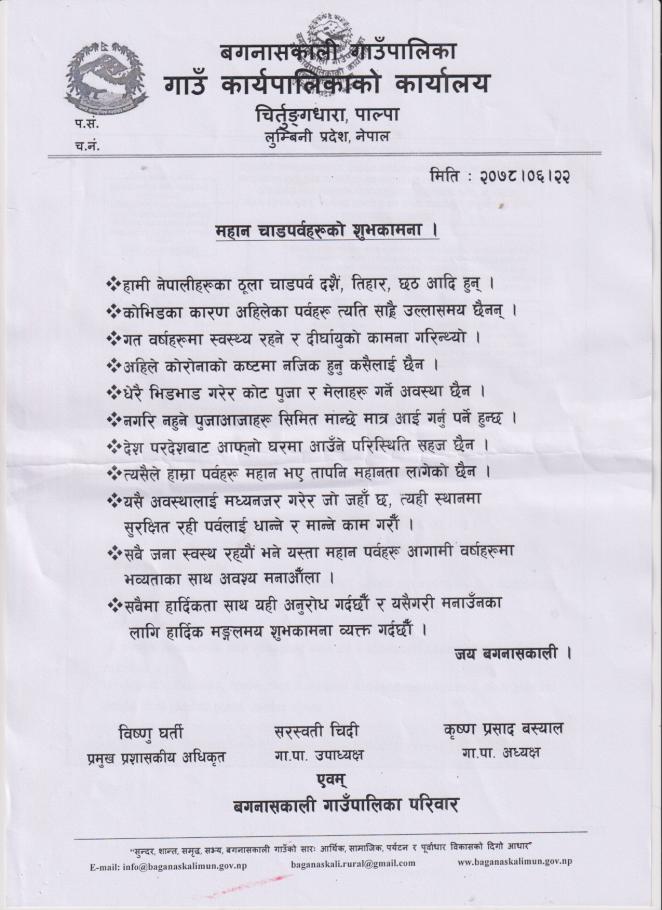 बगनासकाली गाउँपालिका
गाउँ कार्यपालिकाको कार्यालय
चिर्तुङ्गधारा, पाल्पा
लुम्बिनी प्रदेश, नेपाल
प.सं.
च.नं.
मिति : २०७८।०६।२२
महान चाडपर्वहरूको शुभकामना ।
❖हामी नेपालीहरूका ठूला चाडपर्व दशैं, तिहार, छठ आदि हुन् ।
❖कोभिडका कारण अहिलेका पर्वहरू त्यति साह्रै उल्लासमय छैनन् ।
❖गत वर्षाहरूमा स्वस्थ्य रहने र दीर्घायुको कामना गरिन्थ्यो ।
❖अहिले कोरोनाको कष्टमा नजिक हुनु कसैलाई छैन ।
❖धेरै भिडभाड गरेर कोट पुजा र मेलाहरू गर्ने अवस्था छैन ।
❖नगरि नहुने पुजाआजाहरू सिमित मान्छे मात्र आई गर्नु पर्ने हुन्छ ।
❖देश परदेशबाट आफ्नो घरमा आउँने परिस्थिति सहज छैन ।
❖त्यसैले हाम्रा पर्वहरू महान भए तापनि महानता लागेको छैन ।
❖यसै अवस्थालाई मध्यनजर गरेर जो जहाँ छ, त्यही स्थानमा
सुरक्षित रही पर्वलाई धान्ने र मान्ने काम गरौं ।
❖सबै जना स्वस्थ रहयौं भने यस्ता महान पर्वहरू आगामी वर्षाहरूमा
भव्यताका साथ अवश्य मनाऔंला ।
❖सबैमा हार्दिकता साथ यही अनुरोध गर्दछौं र यसैगरी मनाउँनका
लागि हार्दिक मङ्गलमय शुभकामना व्यक्त गर्दछौं ।
जय बगनासकाली ।
विष्णु घर्ती सरस्वती चिदी कृष्ण प्रसाद बस्याल
प्रमुख प्रशासकीय अधिकृत गा.पा. उपाध्यक्ष गा.पा. अध्यक्ष
एवम्
बगनासकाली गाउँपालिका परिवार
"सुन्दर, शान्त, समृद्ध, सभ्य, बगनासकाली गाउँको सारः आर्थिक, सामाजिक, पर्यटन र पूर्वाधार विकासको दिगो आधार"
E-mail: info@baganaskalimun.gov.np baganaskali.rural@gmail.com www.baganaskalimun.gov.np